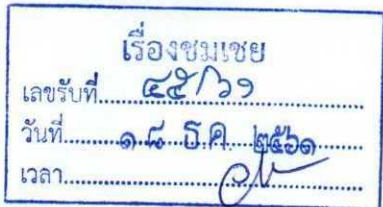 เรื่องชมเชย
เลขรับที่ ๔๕/๖๑
วันที่ ๑๘ ธ.ค. ๒๕๖๑
เวลา